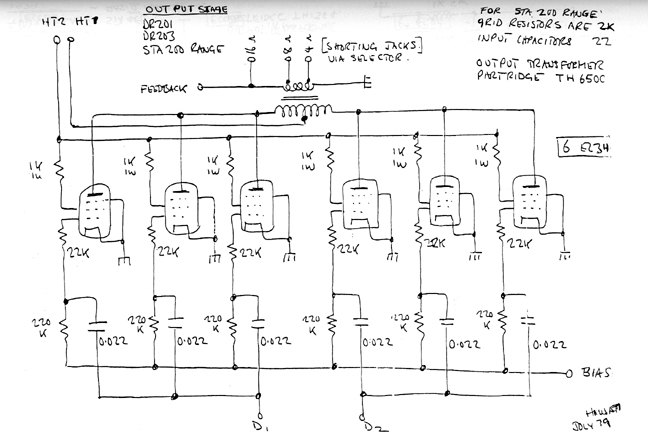 OUTPUT STAGE
DR201
DR203
STA 200 RANGE
HT2 HT1
16Ω 8Ω 4Ω
[SHORTING JACKS]
VIA SELECTOR.
FOR STA 200 RANGE:
GRID RESISTORS ARE 2K
INPUT CAPACITORS 22
OUTPUT TRANSFORMER
PARTRIDGE TH 650C
FEEDBACK
6 EL34
1K 1K 1K 1K 1K 1K
1W 1W 1W 1W 1W 1W
22K 22K 22K 22K 22K 22K
220 220 220 220 220 220
K K K K K K
0.022 0.022 0.022 0.022 0.022 0.022
BIAS
D1 D2
HIWATT
JULY 79